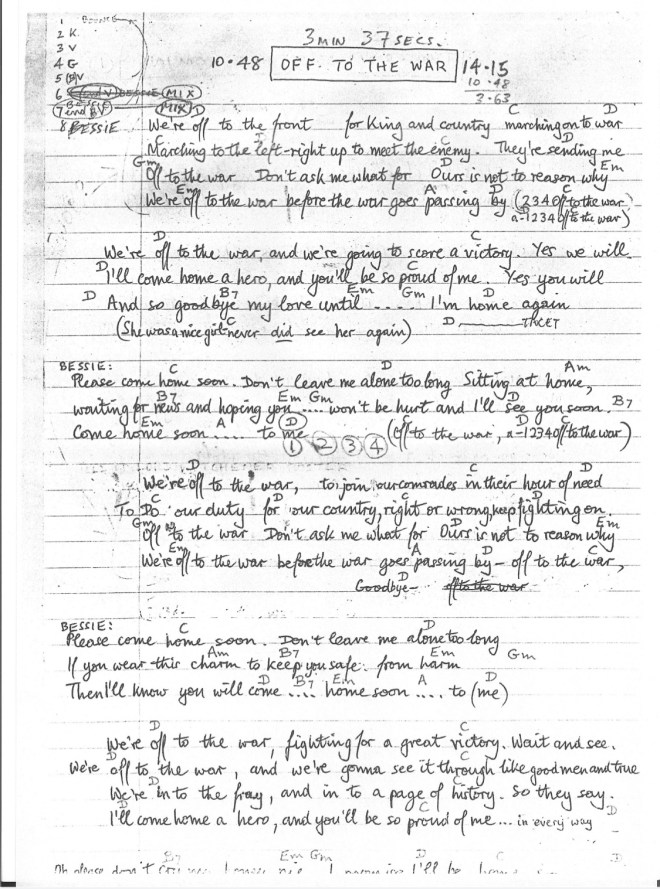 1 BOUNCE
2 K.
3 V
4 G
5 BV
6 BESSIE MIX
7 BESSIE and BV MIX
8 BESSIE
3 MIN 37 SECS.
10.48 OFF TO THE WAR 14.15
10.48
3.63
D C D
We're off to the front for King and country marching on to war
Marching to the left-right up to meet the enemy. They're sending me
Gm D Em
Off to the war Don't ask me what for Ours is not to reason why
Em A D C
We're off to the war before the war goes passing by (234 off to the war
D
a-1234 off to the war)
D C
We're off to the war, and we're going to score a victory. Yes we will.
D C
I'll come home a hero, and you'll be so proud of me. Yes you will
D B7 Em Gm D
And so goodbye my love until .... I'm home again
C D TACET
(She was a nice girl never did see her again)
BESSIE:
C D Am
Please come home soon. Don't leave me alone too long Sitting at home,
B7 Em Gm D B7
waiting for news and hoping you .... won't be hurt and I'll see you soon.
Em A D
Come home soon .... to me (Off to the war, a-1234 off to the war)
1 2 3 4
D C D
We're off to the war, to join our comrades in their hour of need
C D C D
To Do our duty for our country, right or wrong, keep fighting on.
Gm D Em
Off to the war Don't ask me what for Ours is not to reason why
Em A D C
We're off to the war before the war goes passing by - off to the war,
D
Goodbye - off to the war
BESSIE:
C D
Please come home soon. Don't leave me alone too long
Am B7 Em Gm
If you wear this charm to keep you safe from harm
D B7 Em A
Then I'll know you will come .... home soon .... to (me)
D C
We're off to the war, fighting for a great victory. Wait and see.
D C
We're off to the war, and we're gonna see it through like good men and true
D C
We're in to the fray, and in to a page of history. So they say.
D C D
I'll come home a hero, and you'll be so proud of me... in every way
B7 Em Gm D C D